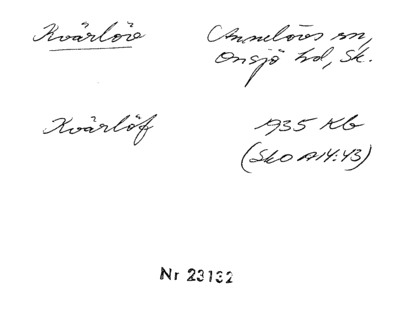 Kvärlöv Annelövs sn,
Onsjö hd, Sk.
Kvärlöf 1935 Kb
(Sko A14:43)
Nr 23132